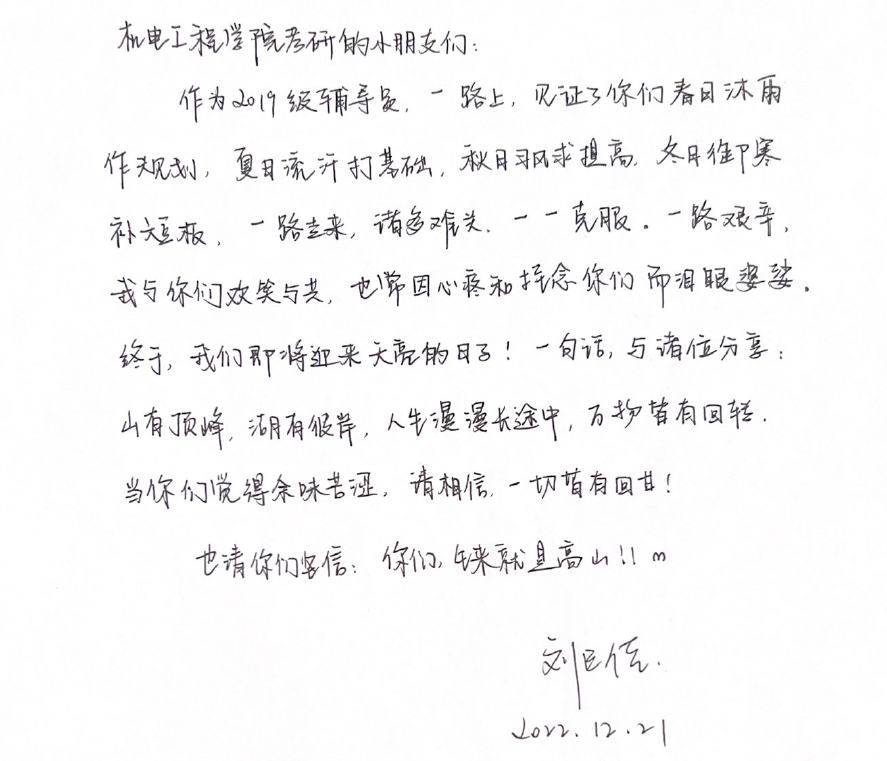 机电工程学院考研的小朋友们：
作为2019级辅导员，一路上，见证了你们春日沐雨
作规划，夏日流汗打基础，秋日习风求提高，冬日御寒
补短板，一路走来，诸多难关，一一克服。一路艰辛，
我与你们欢笑与共，也常因心疼和挂念你们而泪眼婆娑。
终于，我们即将迎来天亮的日子！一句话，与诸位分享：
山有顶峰，湖有彼岸，人生漫漫长途中，万物皆有回转．
当你们觉得余味苦涩，请相信，一切皆有回甘！
也请你们坚信：你们，生来就是高山！！
刘
2022.12.21